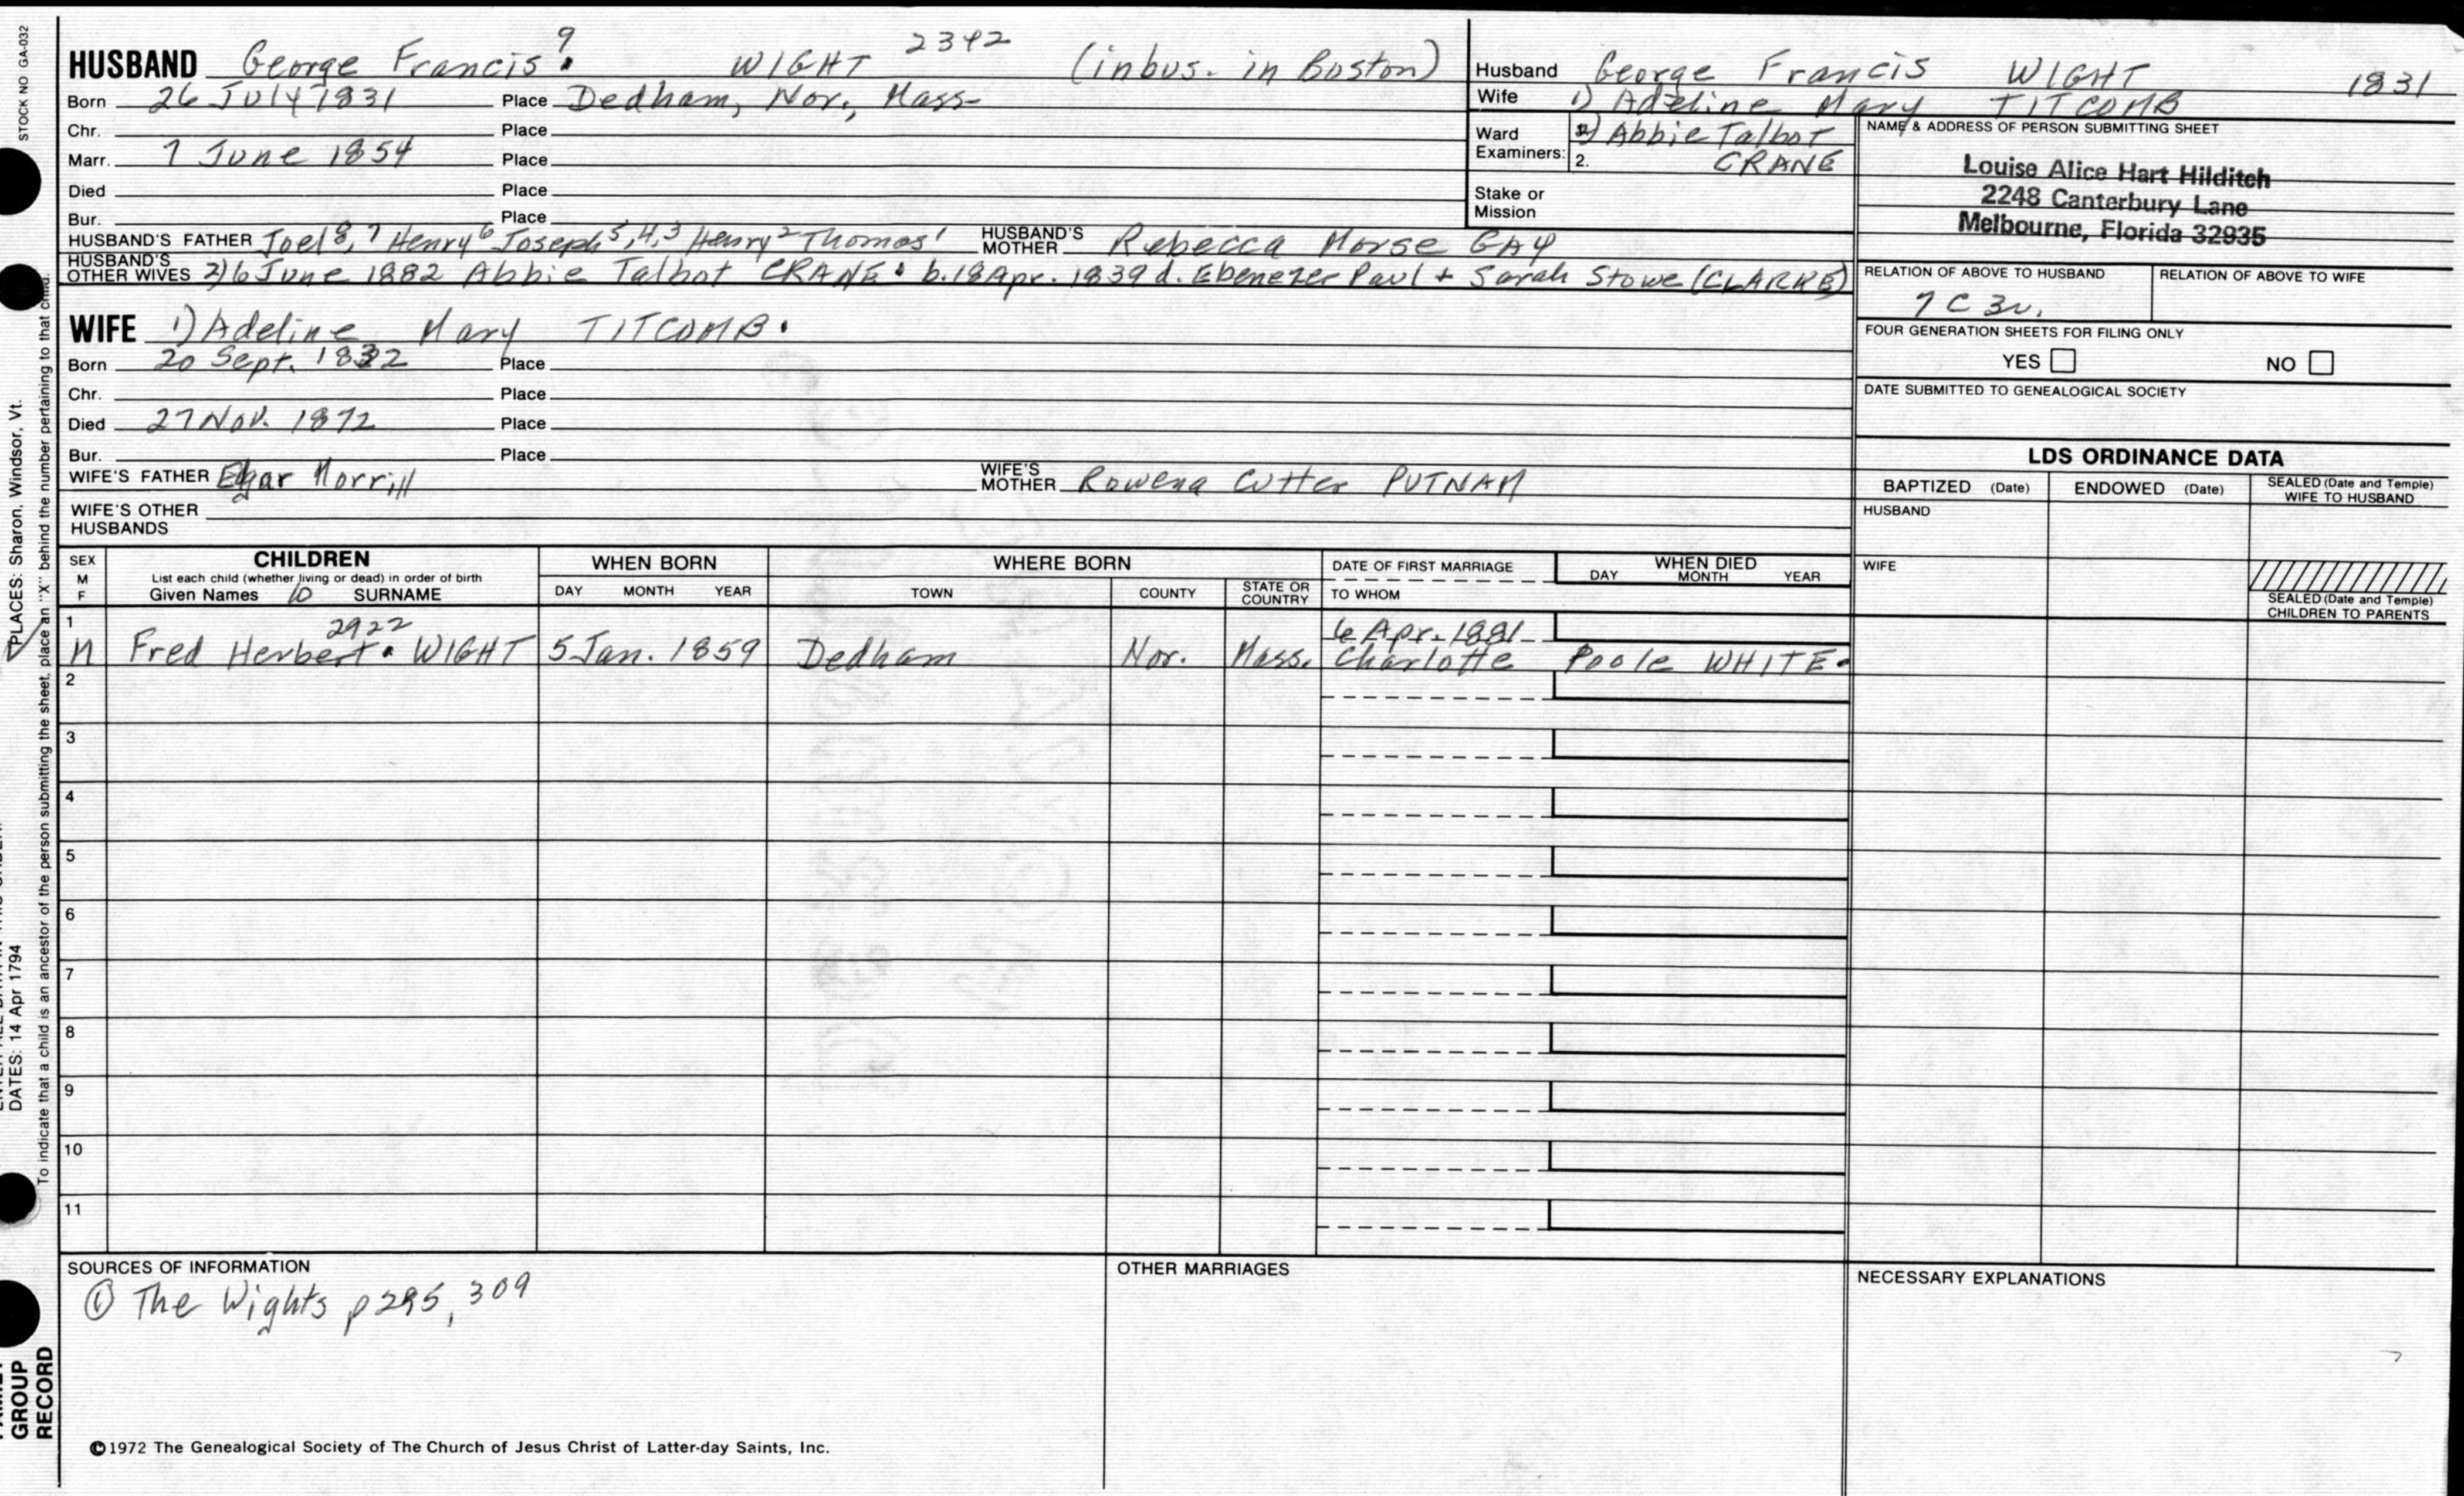 STOCK NO GA-032
HUSBAND George Francis 9 WIGHT 2342 (in bus. in Boston)
Born 26 July 1831 Place Dedham, Nor., Mass-
Chr. Place
Marr. 7 June 1854 Place
Died Place
Bur. Place
HUSBAND'S FATHER Joel 8, 7 Henry 6 Joseph 5, 4, 3 Henry 2 Thomas 1 HUSBAND'S MOTHER Rebecca Morse GAY
HUSBAND'S OTHER WIVES 2) 6 June 1882 Abbie Talbot CRANE. b. 18 Apr. 1839 d. Ebenezer Paul + Sarah Stowe (CLARKE)
WIFE 1) Adeline Mary TITCOMB.
Born 20 Sept. 1832 Place
Chr. Place
Died 27 Nov. 1872 Place
Bur. Place
WIFE'S FATHER Morrill WIFE'S MOTHER Rowena Cutter PUTNAM
WIFE'S OTHER HUSBANDS
Husband George Francis WIGHT 1831
Wife 1) Adeline Mary TITCOMB
Ward Examiners: 2) Abbie Talbot
2. CRANE
Stake or Mission
NAME & ADDRESS OF PERSON SUBMITTING SHEET
Louise Alice Hart Hilditch
2248 Canterbury Lane
Melbourne, Florida 32935
RELATION OF ABOVE TO HUSBAND RELATION OF ABOVE TO WIFE
7 C 3r.
FOUR GENERATION SHEETS FOR FILING ONLY
YES NO
DATE SUBMITTED TO GENEALOGICAL SOCIETY
LDS ORDINANCE DATA
BAPTIZED (Date) ENDOWED (Date) SEALED (Date and Temple) WIFE TO HUSBAND
HUSBAND
WIFE
SEALED (Date and Temple) CHILDREN TO PARENTS
SEX M F
CHILDREN
List each child (whether living or dead) in order of birth
Given Names 10 SURNAME
WHEN BORN
DAY MONTH YEAR
WHERE BORN
TOWN COUNTY STATE OR COUNTRY
DATE OF FIRST MARRIAGE
TO WHOM
WHEN DIED
DAY MONTH YEAR
1 2922 6 Apr. 1881
M Fred Herbert. WIGHT 5 Jan. 1859 Dedham Nor. Mass. Charlotte Poole WHITE.
2
3
4
5
6
7
8
9
10
11
SOURCES OF INFORMATION
① The Wights p 295, 309
OTHER MARRIAGES
NECESSARY EXPLANATIONS
©1972 The Genealogical Society of The Church of Jesus Christ of Latter-day Saints, Inc.
PLACES: Sharon, Windsor, Vt.
DATES: 14 Apr 1794
To indicate that a child is an ancestor of the person submitting the sheet, place an "X" behind the number pertaining to that child.
GROUP
RECORD